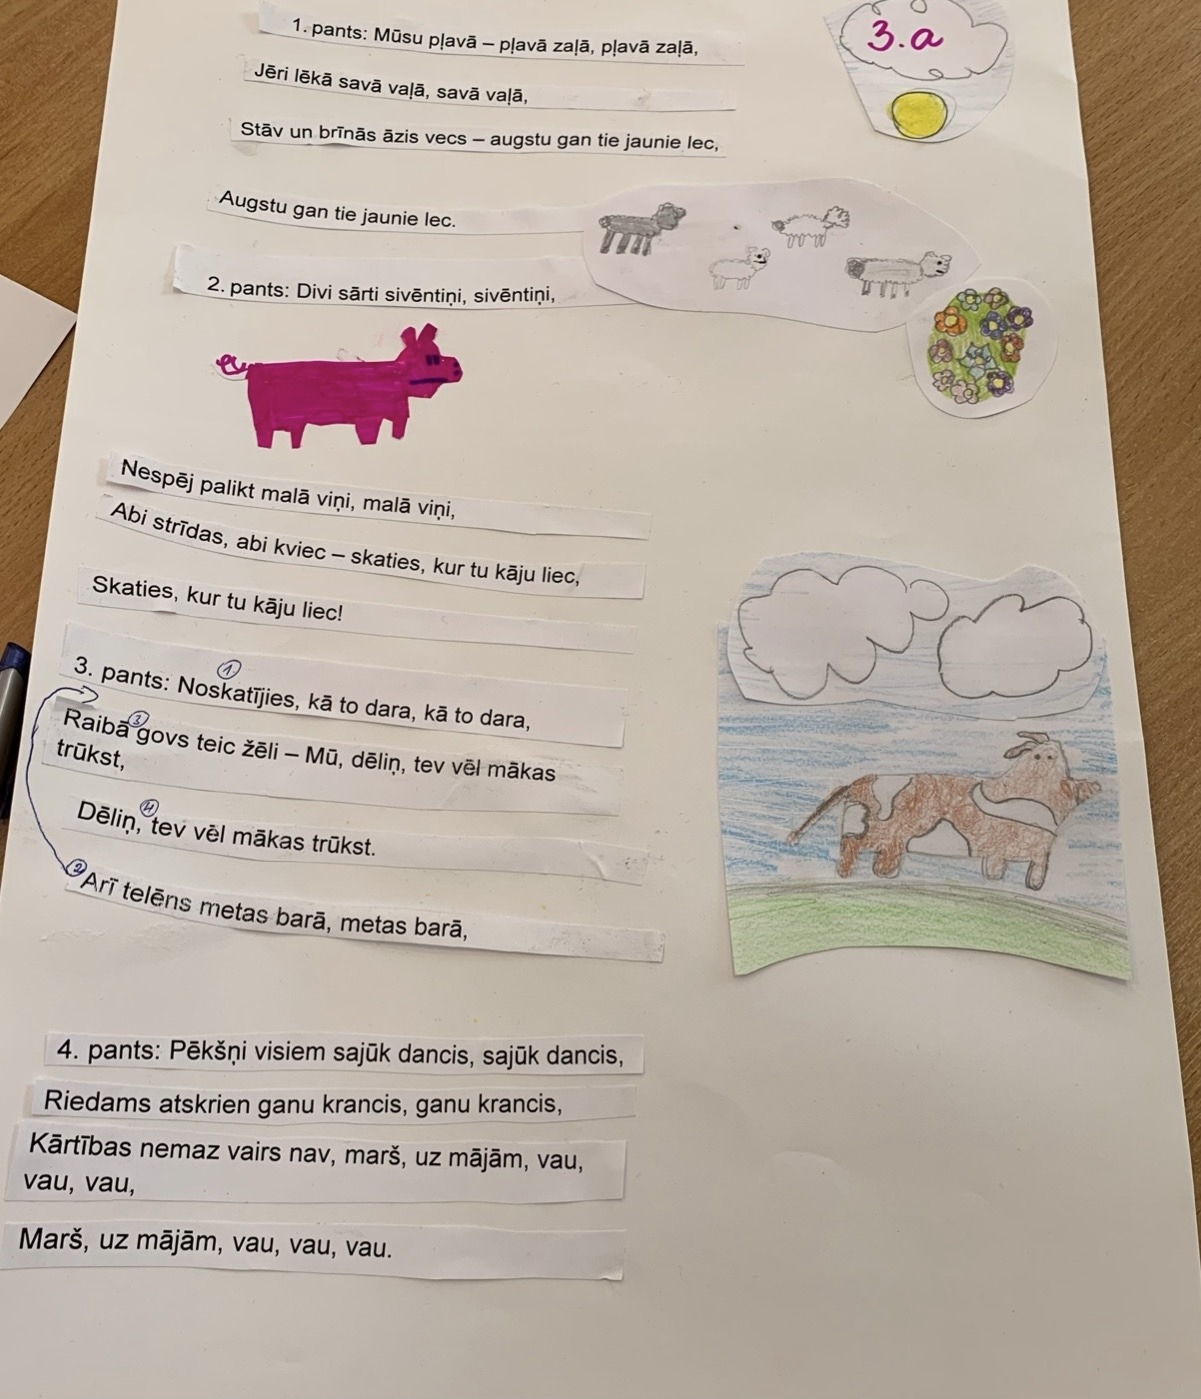 3.a
1. pants: Mūsu pļavā – pļavā zaļā, pļavā zaļā,
Jēri lēkā savā vaļā, savā vaļā,
Stāv un brīnās āzis vecs – augstu gan tie jaunie lec,
Augstu gan tie jaunie lec.
2. pants: Divi sārti sivēntiņi, sivēntiņi,
Nespēj palikt malā viņi, malā viņi,
Abi strīdas, abi kviec – skaties, kur tu kāju liec,
Skaties, kur tu kāju liec!
1
3. pants: Noskatījies, kā to dara, kā to dara,
3
Raibā govs teic žēli – Mū, dēliņ, tev vēl mākas
trūkst,
4
Dēliņ, tev vēl mākas trūkst.
2
Arī telēns metas barā, metas barā,
4. pants: Pēkšņi visiem sajūk dancis, sajūk dancis,
Riedams atskrien ganu krancis, ganu krancis,
Kārtības nemaz vairs nav, marš, uz mājām, vau,
vau, vau,
Marš, uz mājām, vau, vau, vau.